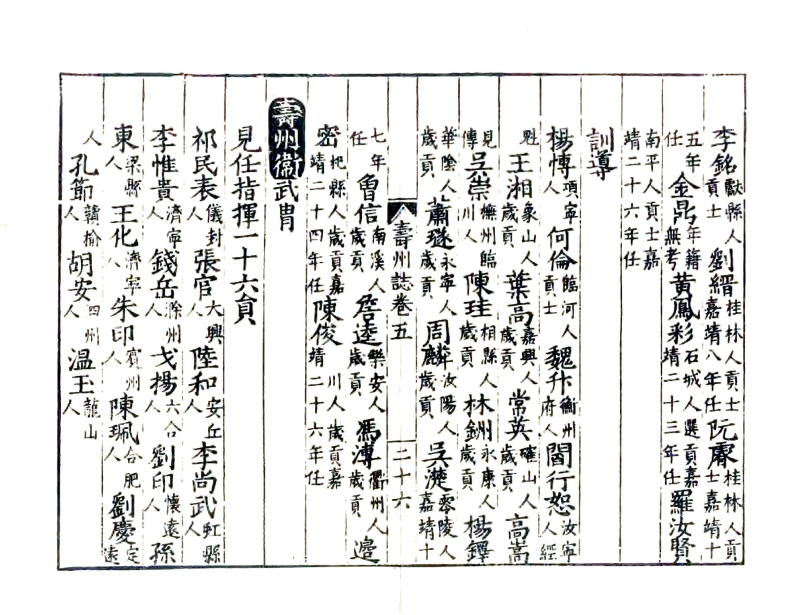 李銘獻縣人貢士劉縉桂林人貢士嘉靖八年任阮廌桂林人貢士嘉靖十
五年任金鼎年籍無考黄鳳彩石城人選貢嘉靖二十三年任羅汝賢
南平人貢士嘉靖二十六年任
訓導
楊愽項寧人何倫臨河人貢士魏升衡州府人閻行恕汝寧人經
魁王湘象山人歲貢葉高嘉興人歲貢常英確山人歲貢高嵩
見傳吳崇撫州臨川人陳珪相縣人歲貢林釧永康人歲貢楊鐸
華陰人歲貢蕭璲永寧人歲貢周麟汝陽人歲貢吳濋零陵人嘉靖十
七年任魯信南溪人歲貢詹逵樂安人歲貢馮溥衢州人歲貢邉
密杞縣人歲貢嘉靖二十四年任陳俊川人歲貢嘉靖二十六年任
壽州衛武胄
見任指揮一十六員
祁民表儀封人張官大興人陸和安丘人李尚武虹縣
李惟貴濟寧人錢岳滁州人戈揚六合人劉印懷遠人孫
東梁縣人王化濟寧人朱印賓州人陳珮合肥人劉慶定遠
人孔節贛榆人胡安四州人温玉龍山人
壽州誌卷五
二十六